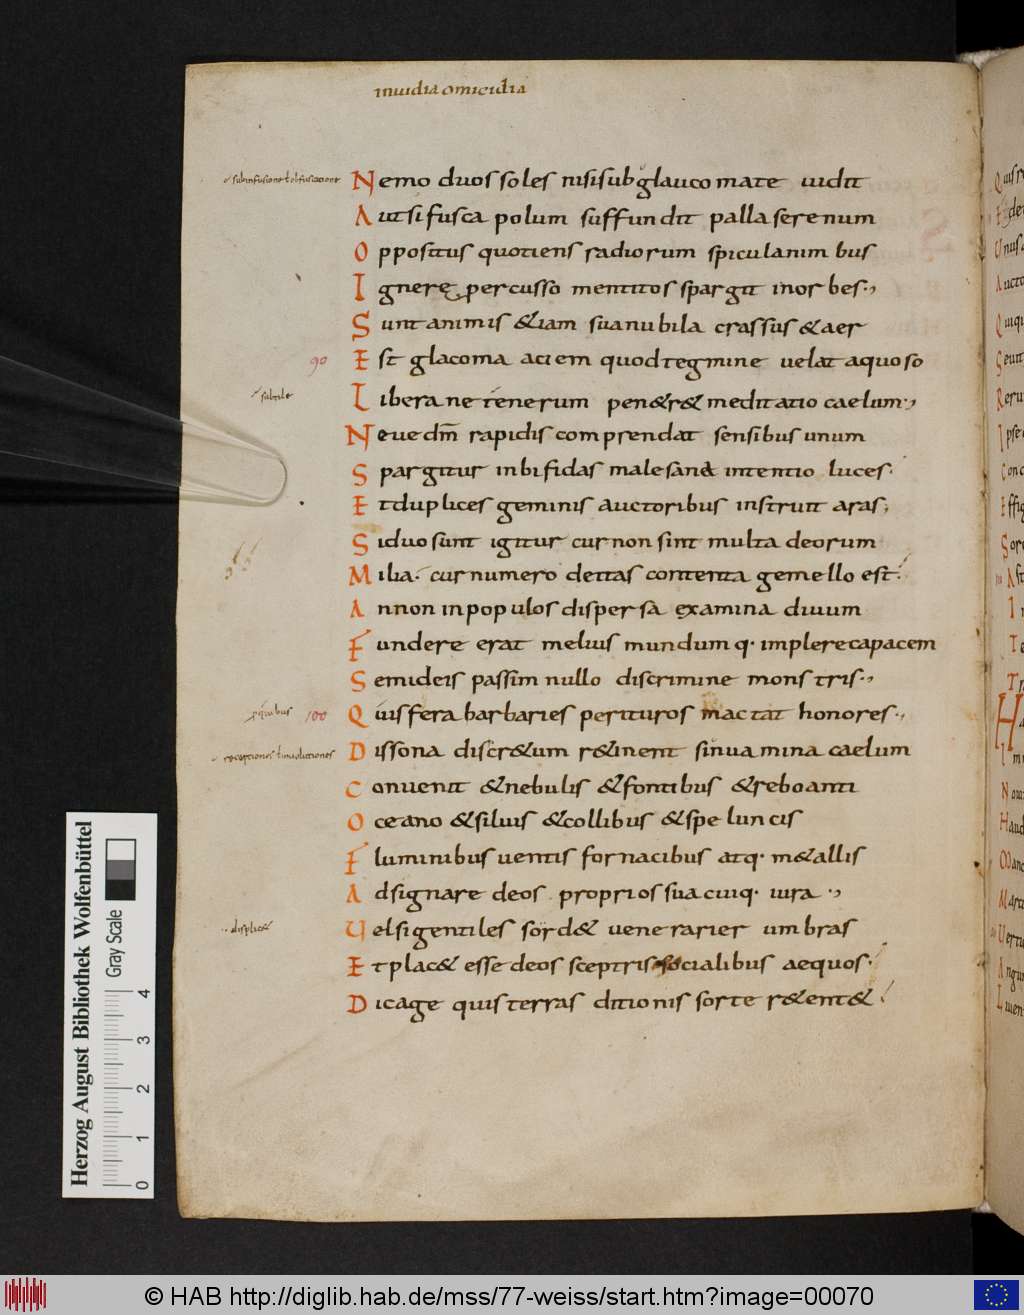 inuidia omicidia
subinfusione ł obfuscatione
Nemo duos soles nisi sub glauco mate uidit
Aut si fusca polum suffundit palla serenum
Oppositus quotiens radiorum spicula nimbus
Ignerę percusso mentitos spargit in orbes
Sunt animis &iam sua nubila crassus & aer
90
Est glacoma aciem quod tegmine uelat aquoso
subtile
Libera ne tenerum pen&r& meditatio caelum
Neue dm̄ rapidis comprendat sensibus unum
Spargitur in bifidas malesan& intentio luces
Et duplices geminis auctoribus instruit aras
Si duo sunt igitur cur non sint multa deorum
Milia cur numero deitas contenta gemello est
An non in populos dispersa examina diuum
Fundere erat melius mundumq· implere capacem
Semideis passim nullo discrimine monstris
100
Quis fera barbaries perituros mactat honores
receptiones ł inuolutiones
Dissona discr&um r&inent sinuamina caelum
Conuenit & nebulis & fontibus & reboanti
Oceano & siluis & collibus & speluncis
Fluminibus uentis fornacibus atq· m&allis
Adsignare deos proprios sua cuiq· iura
displic&
Uel si gentiles sord& uenerarier umbras
Et plac& esse deos sceptris socialibus aequos
Dic age quis terras ditionis sorte r&ent&
Herzog August Bibliothek Wolfenbüttel
Gray Scale
0 1 2 3 4
© HAB http://diglib.hab.de/mss/77-weiss/start.htm?image=00070